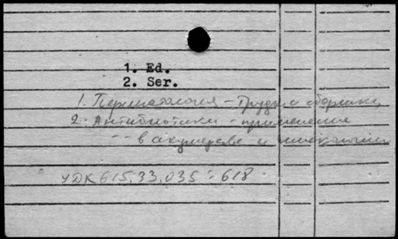 1. Ed.
2. Ser.
1. Перинатология - Труды и сборники
2. Антибиотики - применение
-"- в акушерстве и гинекологии
УДК 615.33.035:618